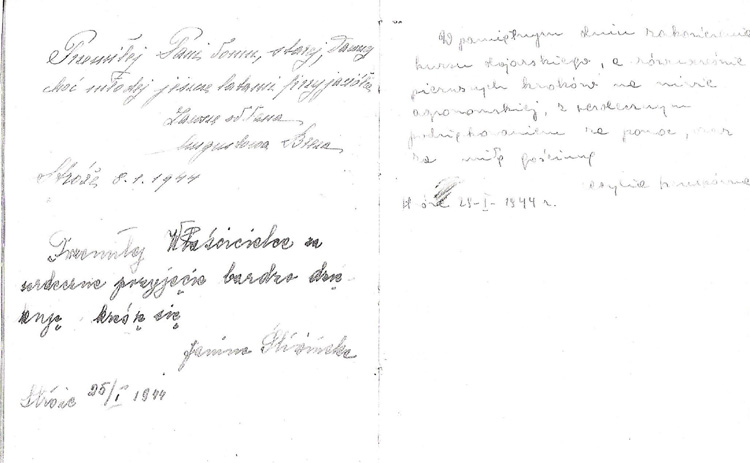 Przemiłej Pani domu, starej, dawnej
choć młodej jeszcze latami przyjaciółce
Zawsze oddana
Augustowa
8.1.1944
Przemiłej Właścicielce za
serdeczne przyjęcie bardzo dzię-
kuję kreślę się
Janina Śliwińska
Stróże 25/I 1944
W pamiętnym dniu zakończenia
kursu, a równocześnie
pierwszych kroków na niwie
agronomskiej, z serdecznym
podziękowaniem za pomoc, oraz
za miłą gościnę
29-I-1944 r.